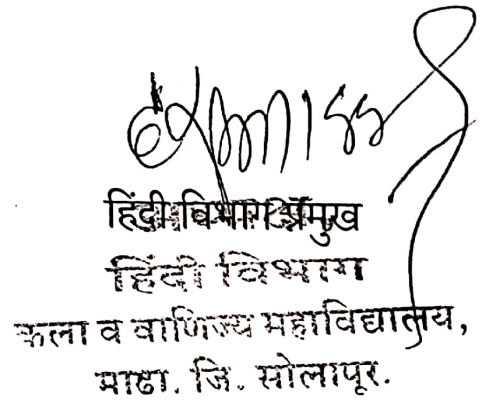 हिंदी विभाग प्रमुख
हिंदी विभाग
कला व वाणिज्य महाविद्यालय,
माढा. जि. सोलापूर.